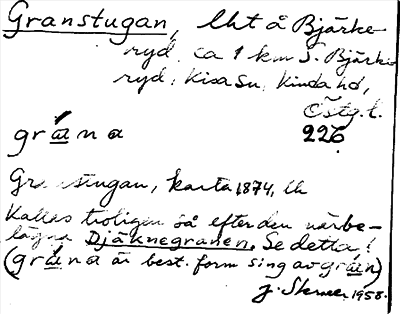 Granstugan, lht å Bjärke-
ryd, ca 1 km S. Bjärke
ryd; Kisa sn, Kinda hd,
Östg. l.
gräna 226
Granstugan, karta 1874, lh
Kallas troligen så efter den närbe-
lägna Djäknegranen. Se detta!
(gräna är best. form sing av grän)
J. 1958.